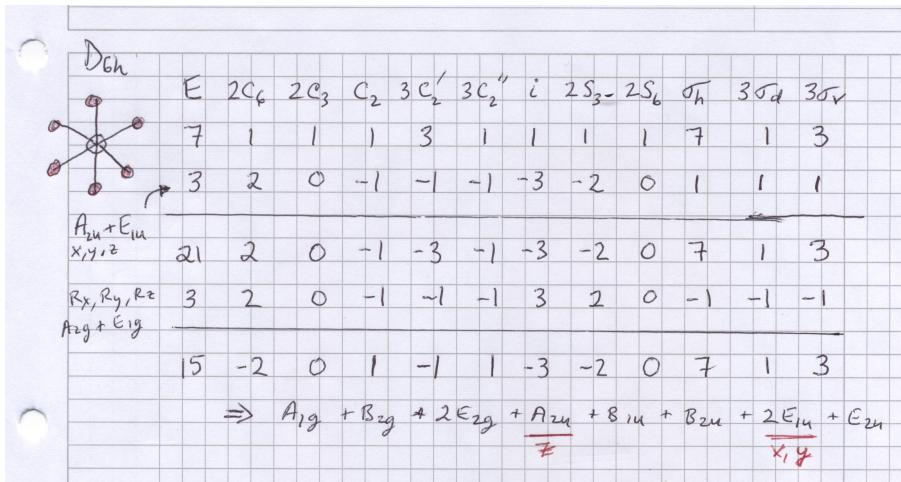 D6h
E 2C6 2C3 C2 3C2' 3C2'' i 2S3 - 2S6 σh 3σd 3σv
7 1 1 1 3 1 1 1 1 7 1 3
3 2 0 -1 -1 -1 -3 -2 0 1 1 1
A2u + E1u
x, y, z
21 2 0 -1 -3 -1 -3 -2 0 7 1 3
Rx, Ry, Rz 3 2 0 -1 -1 -1 3 2 0 -1 -1 -1
A2g + E1g
15 -2 0 1 -1 1 -3 -2 0 7 1 3
⇒ A1g + B2g + 2E2g + A2u + B1u + B2u + 2E1u + E2u
z x, y